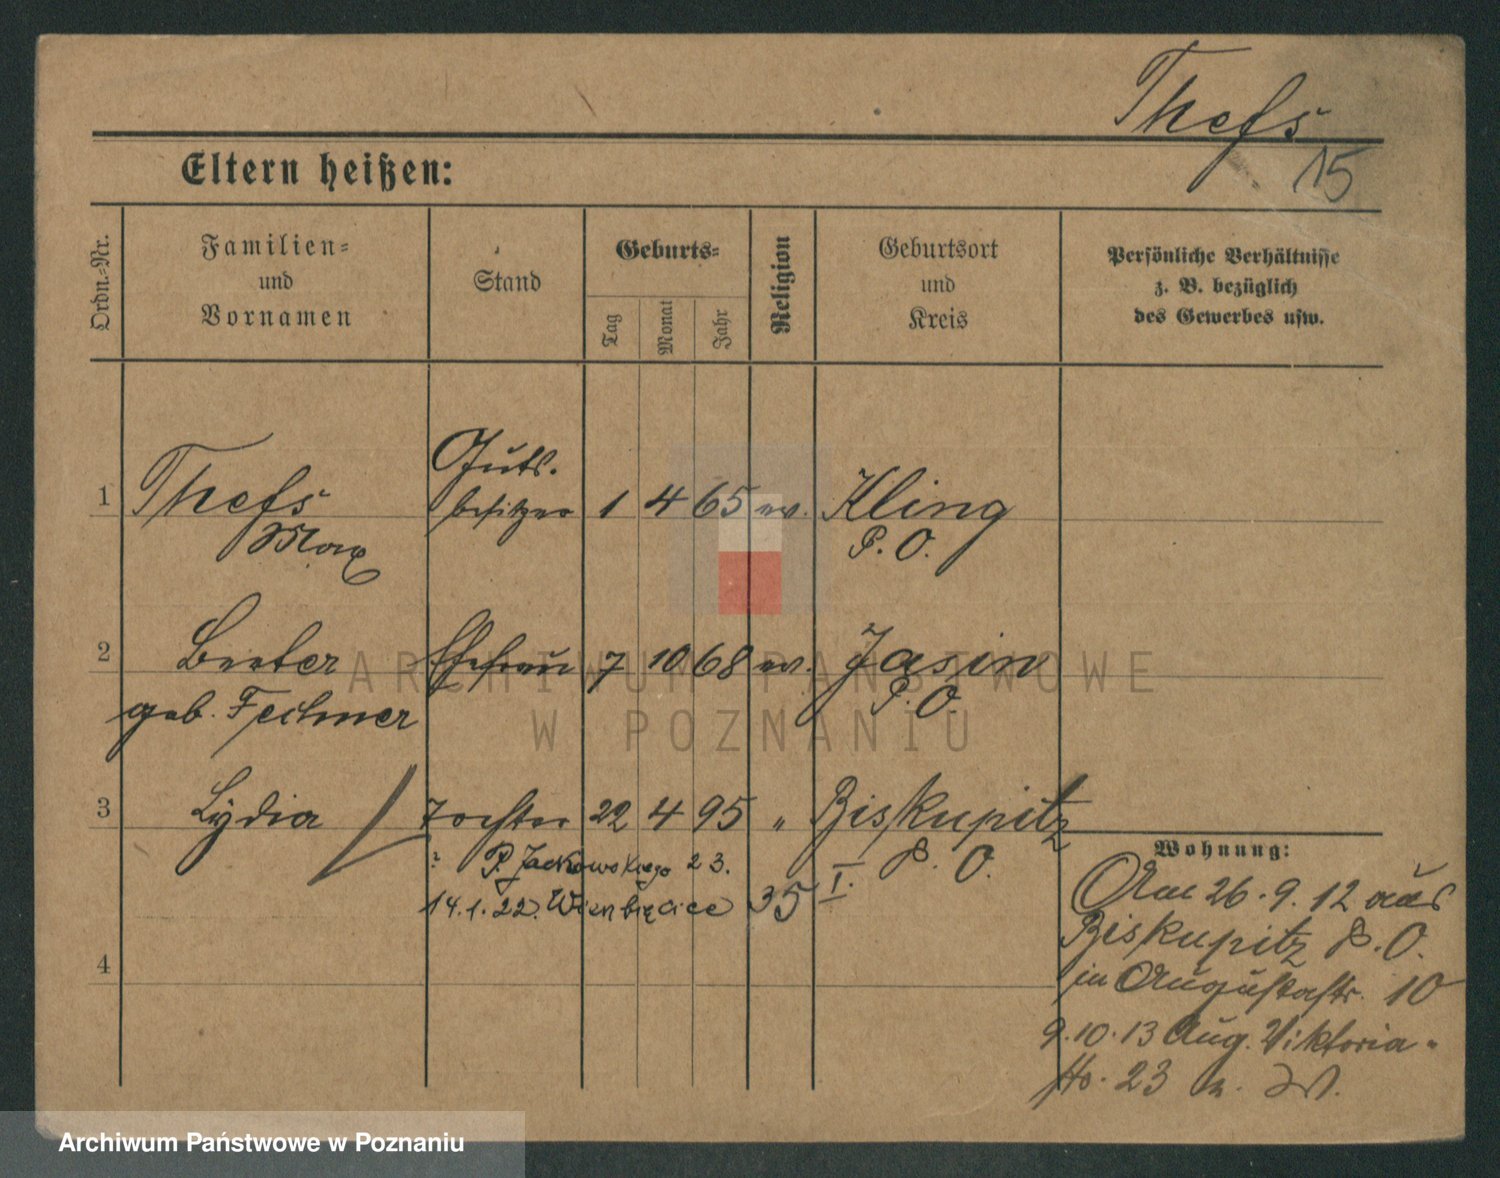 Thefs
15
Eltern heißen:
Ordn.-Nr.
Familien-
und
Vornamen
Stand
Geburts-
Tag
Monat
Jahr
Religion
Geburtsort
und
Kreis
Persönliche Verhältnisse
z. B. bezüglich
des Gewerbes usw.
1 Thefs Guts. besitzer 1 4 65 ev. Kling
Max P. O.
2 Ehefrau 7 10 68 ev. Jasin
geb. Fechner P. O.
3 Lydia Tochter 22 4 95 " Biskupitz
P. O.
P. Jackowskiego 23.
14.1.22. 35 I.
4
Wohnung:
Am 26.9.12 aus
Biskupitz P. O.
in Augustastr. 10
9.10.13 Aug. Viktoria-
str. 23
ARCHIWUM PAŃSTWOWE
W POZNANIU
Archiwum Państwowe w Poznaniu